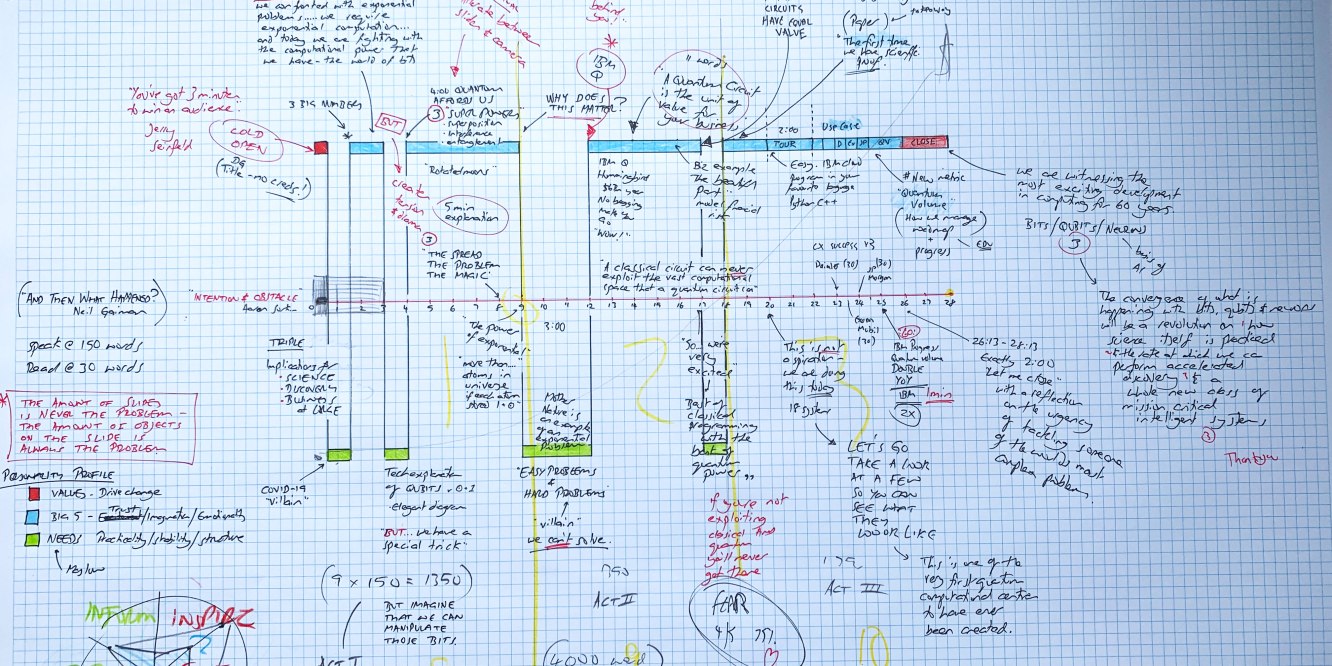 we are confronted with exponential
problems..... we require
exponential computation...
and today we are fighting with
the computational power that
we have - the world of bits
iterate between
slides & camera
behind
you!
CIRCUITS
HAVE EQUAL
VALUE
(Paper)
following
"The first time
we have scientific
proof
"You've got 3 minutes
to win an audience"
Jerry
Seinfeld
COLD
OPEN
(Title - no creds - !)
3 BIG NUMBERS
*
BUT
4:00 QUANTUM
AFFORDS US
③ "SUPER POWERS"
· superposition
· interference
· entanglement
WHY DOES
THIS MATTER?
*
IBM
Q
11 words
"A Quantum Circuit
is the unit of
value for
your business"
2:00
Use Case
TOUR
D
JP
QV
CLOSE
creates
tension
& drama
③
5 min
explanation
"THE SPREAD
THE PROBLEM
THE MAGIC"
IBM Q
Hummingbird
No begging
Go
"Wow!"
B2 example
The beaker
Part"
model financial
risk
Easy. IBM cloud
program in your
favorite language
Python C++
# New metric
"Quantum
Volume"
(How we measure
roadmap
+
progress
we are witnessing the
most exciting development
in computing for 60 years.
BITS/QUBITS/NEURONS
③
basis of
AI
"A classical circuit can never
exploit the vast computational
space that a quantum circuit can"
CX SUCCESS V3
Daimler (30)
JP (30)
Morgan
"AND THEN WHAT HAPPENED?"
Neil Gaiman
"INTENTION & OBSTACLE"
0 1 2 3 4 5 6 7 8 9 10 11 12 13 14 15 16 17 18 19 20 21 22 23 24 25 26 27 28
Speak @ 150 words
Read @ 30 words
* THE AMOUNT OF SLIDES
IS NEVER THE PROBLEM -
THE AMOUNT OF OBJECTS
ON THE SLIDE IS
ALWAYS THE PROBLEM
PERSONALITY PROFILE
VALUES - Drive change
BIG 5 - Trust/Imagination/Emotionality
NEEDS Practicality/stability/structure
Maslow
TRIPLE
Implications for
· SCIENCE
· DISCOVERY
· BUSINESS
at LARGE
COVID-19
"villain"
Tech explanation
of QUBITS. 0.1
· elegant diagram
"BUT... we have a
special trick"
The power
of exponential"
"more than..."
atoms in
universe
if each atom
stored 1.0"
3:00
Mother
Nature is
an example
of an
exponential
Problem
"EASY PROBLEMS
&
HARD PROBLEMS"
"villain"
we can't solve.
"So.. were
very
excited
Best of
classical
programming
with the
best of
quantum
power"
If you're not
exploiting
classical AND
quantum
you'll never
get there
This is not
aspiration -
we are doing
this today
18 system
Exxon
Mobil
(30)
60!
IBM Progress
Quantum volume
DOUBLE
YOY
IBM 1min
2X
26:13 - 28:13
Exactly 2:00
Let me close..
with a reflection
on the urgency
of tackling some
of the worlds most
complex problems.
The convergence of what is
happening with bits, qubits & neurons
will be a revolution on how
science itself is practiced
the rate at which we can
perform accelerated
discovery & a
whole new class of
mission critical
intelligent systems
③
Thank you
LET'S GO
TAKE A LOOK
AT A FEW
SO YOU CAN
SEE WHAT
THEY
LOOK LIKE
This is one of the
very first quantum
computational centers
to have ever
been created.
(9 x 150 = 1350)
BUT IMAGINE
THAT WE CAN
MANIPULATE
THOSE BITS.
ACT I
ACT II
ACT III
(4000 words)
FEAR
4K
INFORM
INSPIRE